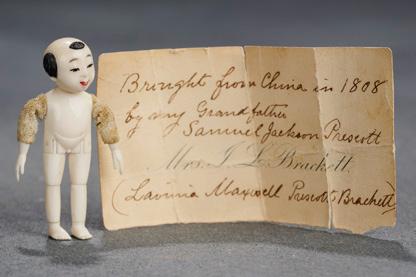 Brought from China in 1808
by my Grandfather
Samuel Jackson Prescott
Mrs. J. L. Brackett.
(Lavinia Maxwell Prescott Brackett)